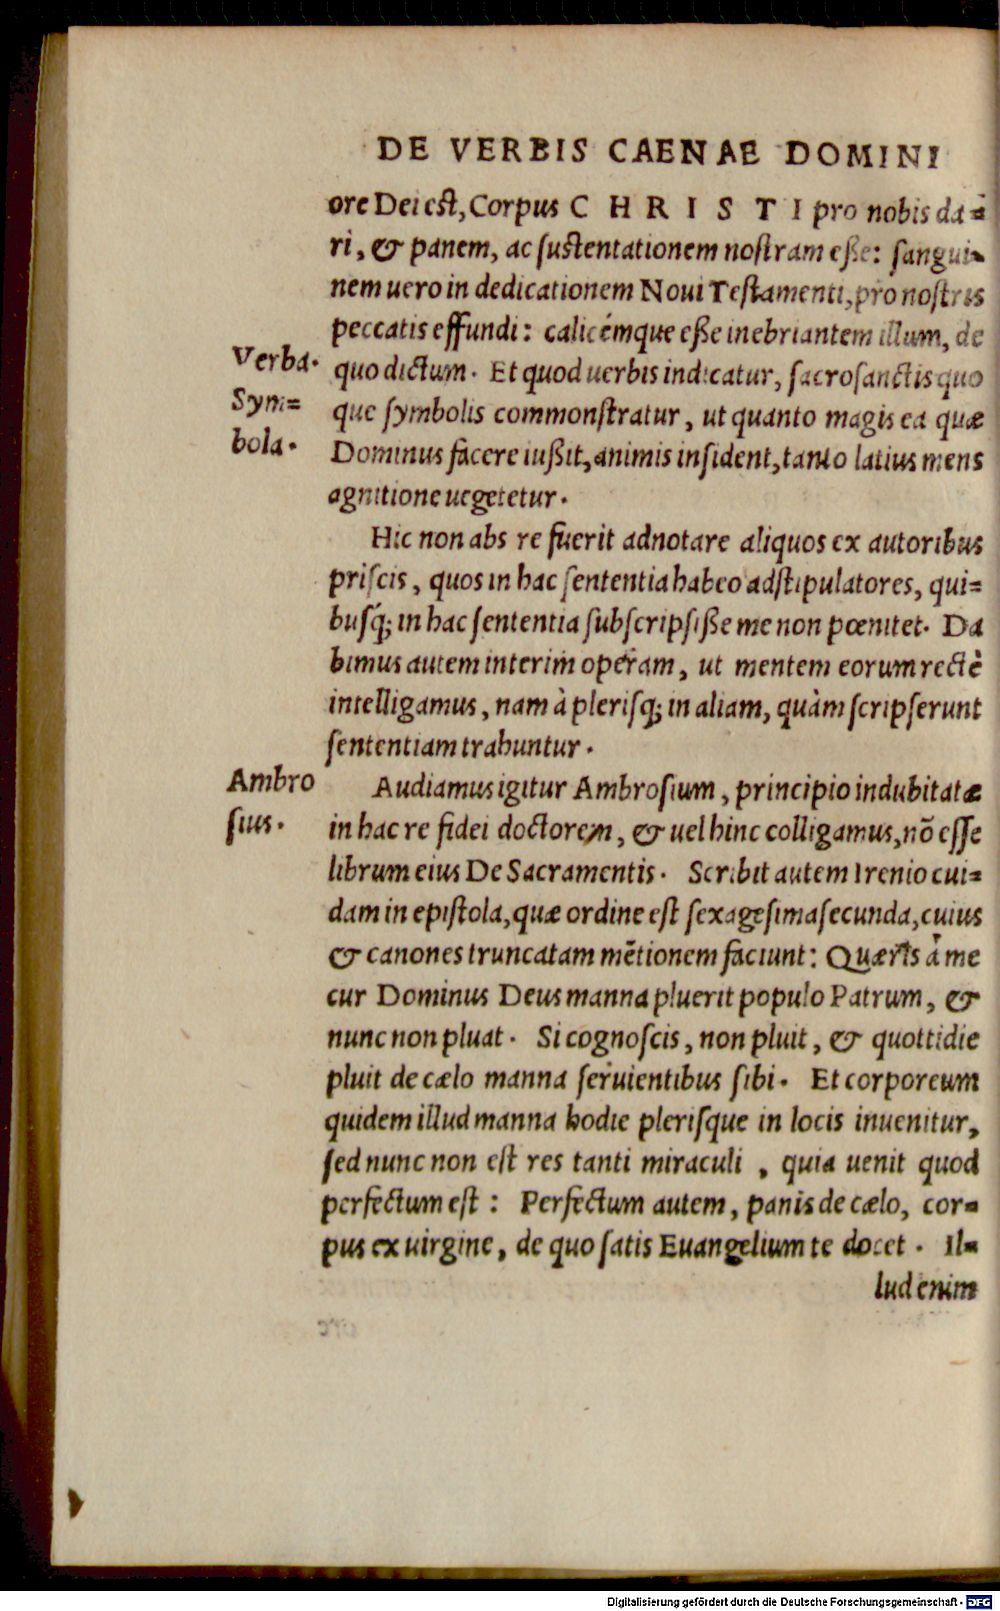 DE VERBIS CAENAE DOMINI
ore Dei est, Corpus C H R I S T I pro nobis da=
ri, & panem, ac sustentationem nostram eße: sangui=
nem uero in dedicationem Noui Testamenti, pro nostris
peccatis effundi: calicémque eße inebriantem illum, de
Verba.
quo dictum. Et quod uerbis indicatur, sacrosanctis quo
Sym=
que symbolis commonstratur, ut quanto magis ea quæ
bola.
Dominus facere iußit, animis insident, tanto latius mens
agnitione uegetetur.
Hic non abs re fuerit adnotare aliquos ex autoribus
priscis, quos in hac sententia habeo adstipulatores, qui=
busq́; in hac sententia subscripsiße me non pœnitet. Da
bimus autem interim operam, ut mentem eorum rectè
intelligamus, nam à plerisq; in aliam, quàm scripserunt
sententiam trahuntur.
Ambro
Audiamus igitur Ambrosium, principio indubitatæ
sius.
in hac re fidei doctorem, & uel hinc colligamus, nõ esse
librum eius De Sacramentis. Scribit autem Irenio cui=
dam in epistola, quæ ordine est sexagesimasecunda, cuius
& canones truncatam mẽtionem faciunt: Quæris à me
cur Dominus Deus manna pluerit populo Patrum, &
nunc non pluat. Si cognoscis, non pluit, & quottidie
pluit de cælo manna seruientibus sibi. Et corporeum
quidem illud manna hodie plerisque in locis inuenitur,
sed nunc non est res tanti miraculi, quia uenit quod
perfectum est: Perfectum autem, panis de cælo, cor=
pus ex uirgine, de quo satis Euangelium te docet. Il=
lud enim
Digitalisierung gefördert durch die Deutsche Forschungsgemeinschaft - DFG